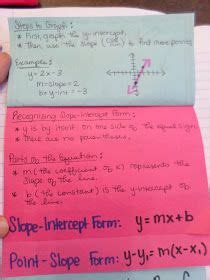 Steps to Graph:
* First, graph the y-intercept.
* Then, use the slope (rise/run) to find more points.
Example:
y = 2x - 3
m = slope = 2
b = y-int = -3
Recognizing Slope-Intercept Form:
* y is by itself on one side of the equal sign.
* There are no parentheses.
Parts of the Equation:
* m (the coefficient of x) represents the
slope of the line.
* b (the constant) is the y-intercept of
the line.
Slope-Intercept Form: y = mx + b
Point-Slope Form: y-y₁ = m(x-x₁)